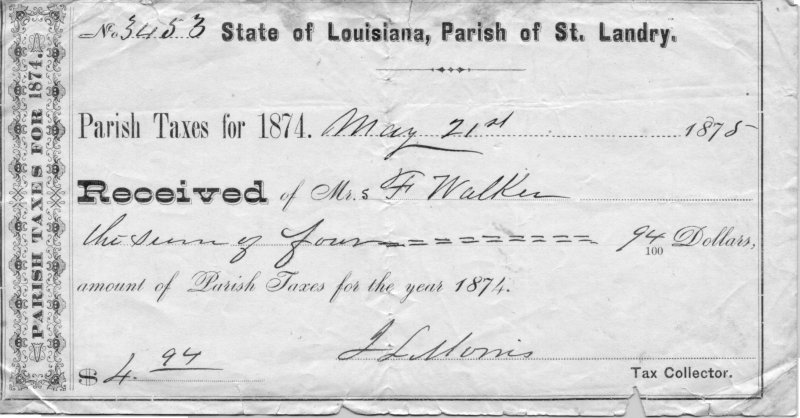 PARISH TAXES FOR 1874.
No. 3453 State of Louisiana, Parish of St. Landry.
Parish Taxes for 1874. May 21st 1875
Received of Mr.s F Walker
the sum of four 94/100 Dollars,
amount of Parish Taxes for the year 1874.
J L Morris
$ 4. 94 Tax Collector.